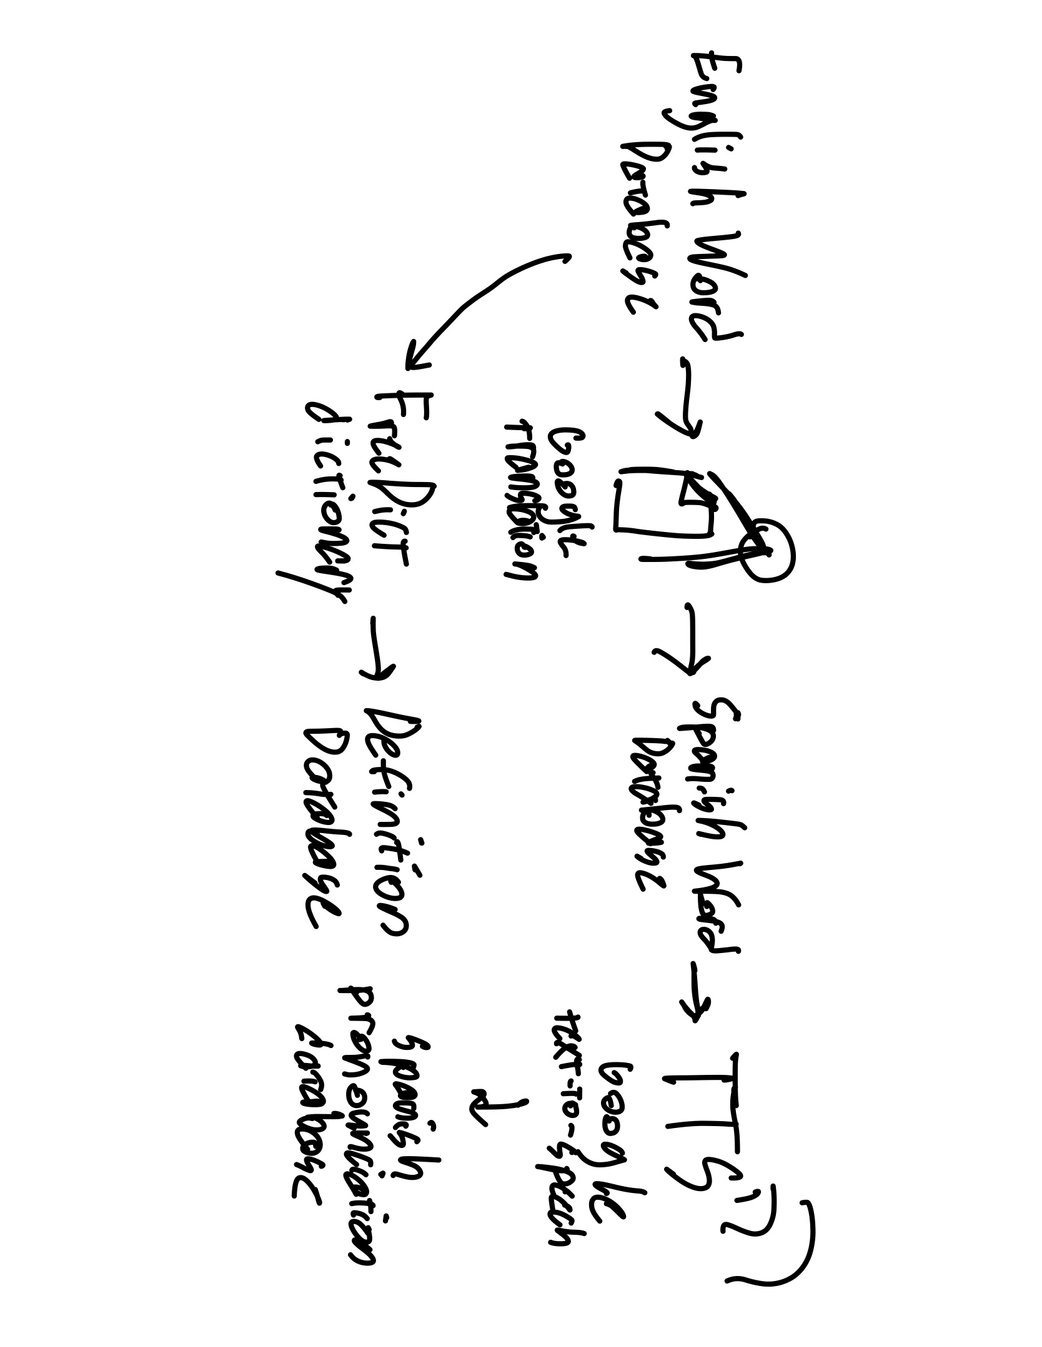 English Word
Database
Google
translation
Spanish Word
Database
TTS
Google
text-to-speech
FreeDict
dictionary
Definition
Database
Spanish
pronounciation
database